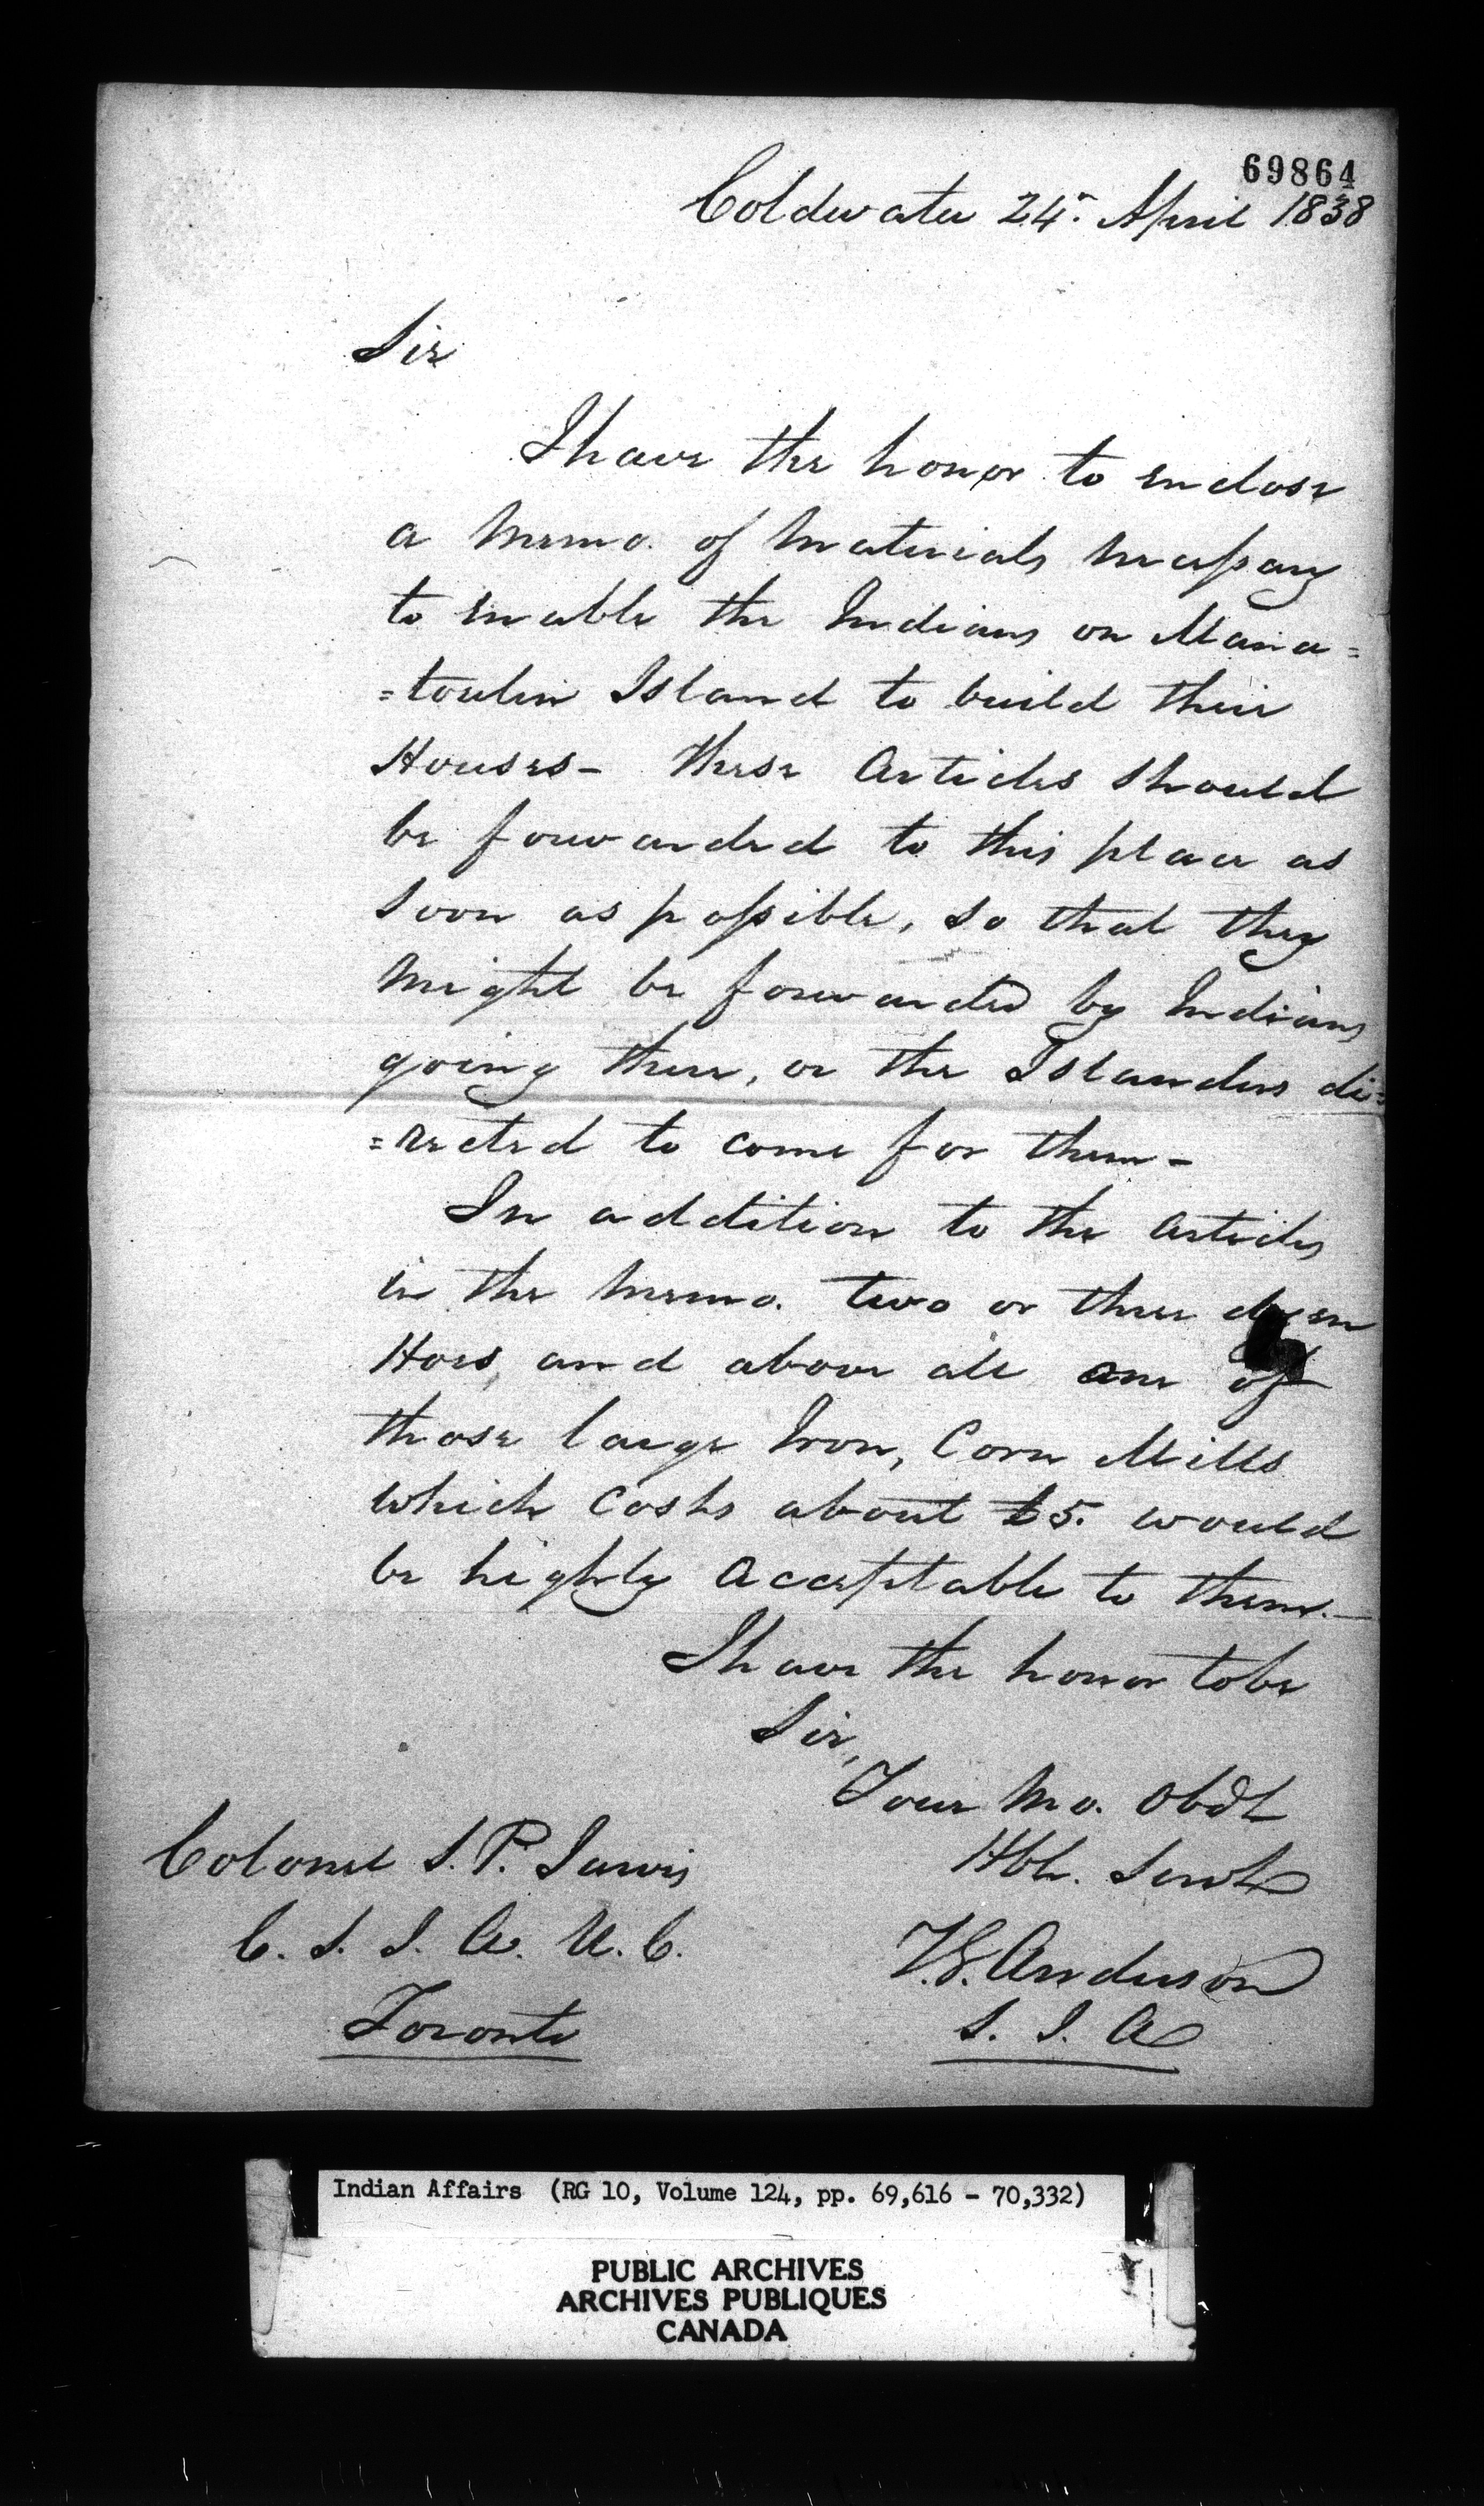 69864
Coldwater 24th April 1838
Sir
I have the honor to enclose
a Memo. of Materials necessary
to enable the Indians on Mana=
=toulin Island to build their
Houses- these Articles should
be forwarded to this place as
soon as possible, so that they
might be forwarded by Indians
going there, or the Islanders di=
=rected to come for them-
In addition to the articles
in the Memo. two or three dozen
Hoes, and above all one of
those large Iron, Corn Mills
which costs about £5. would
be highly acceptable to them.-
I have the honor to be
Sir,
Your Mo. Obdt
Hbl. Servt
Colonel S. P. Jarvis
T.G. Anderson
C. S. I. A. U. C.
S. I. A
Toronto
Indian Affairs (RG 10, Volume 124, pp. 69,616 - 70,332)
PUBLIC ARCHIVES
ARCHIVES PUBLIQUES
CANADA